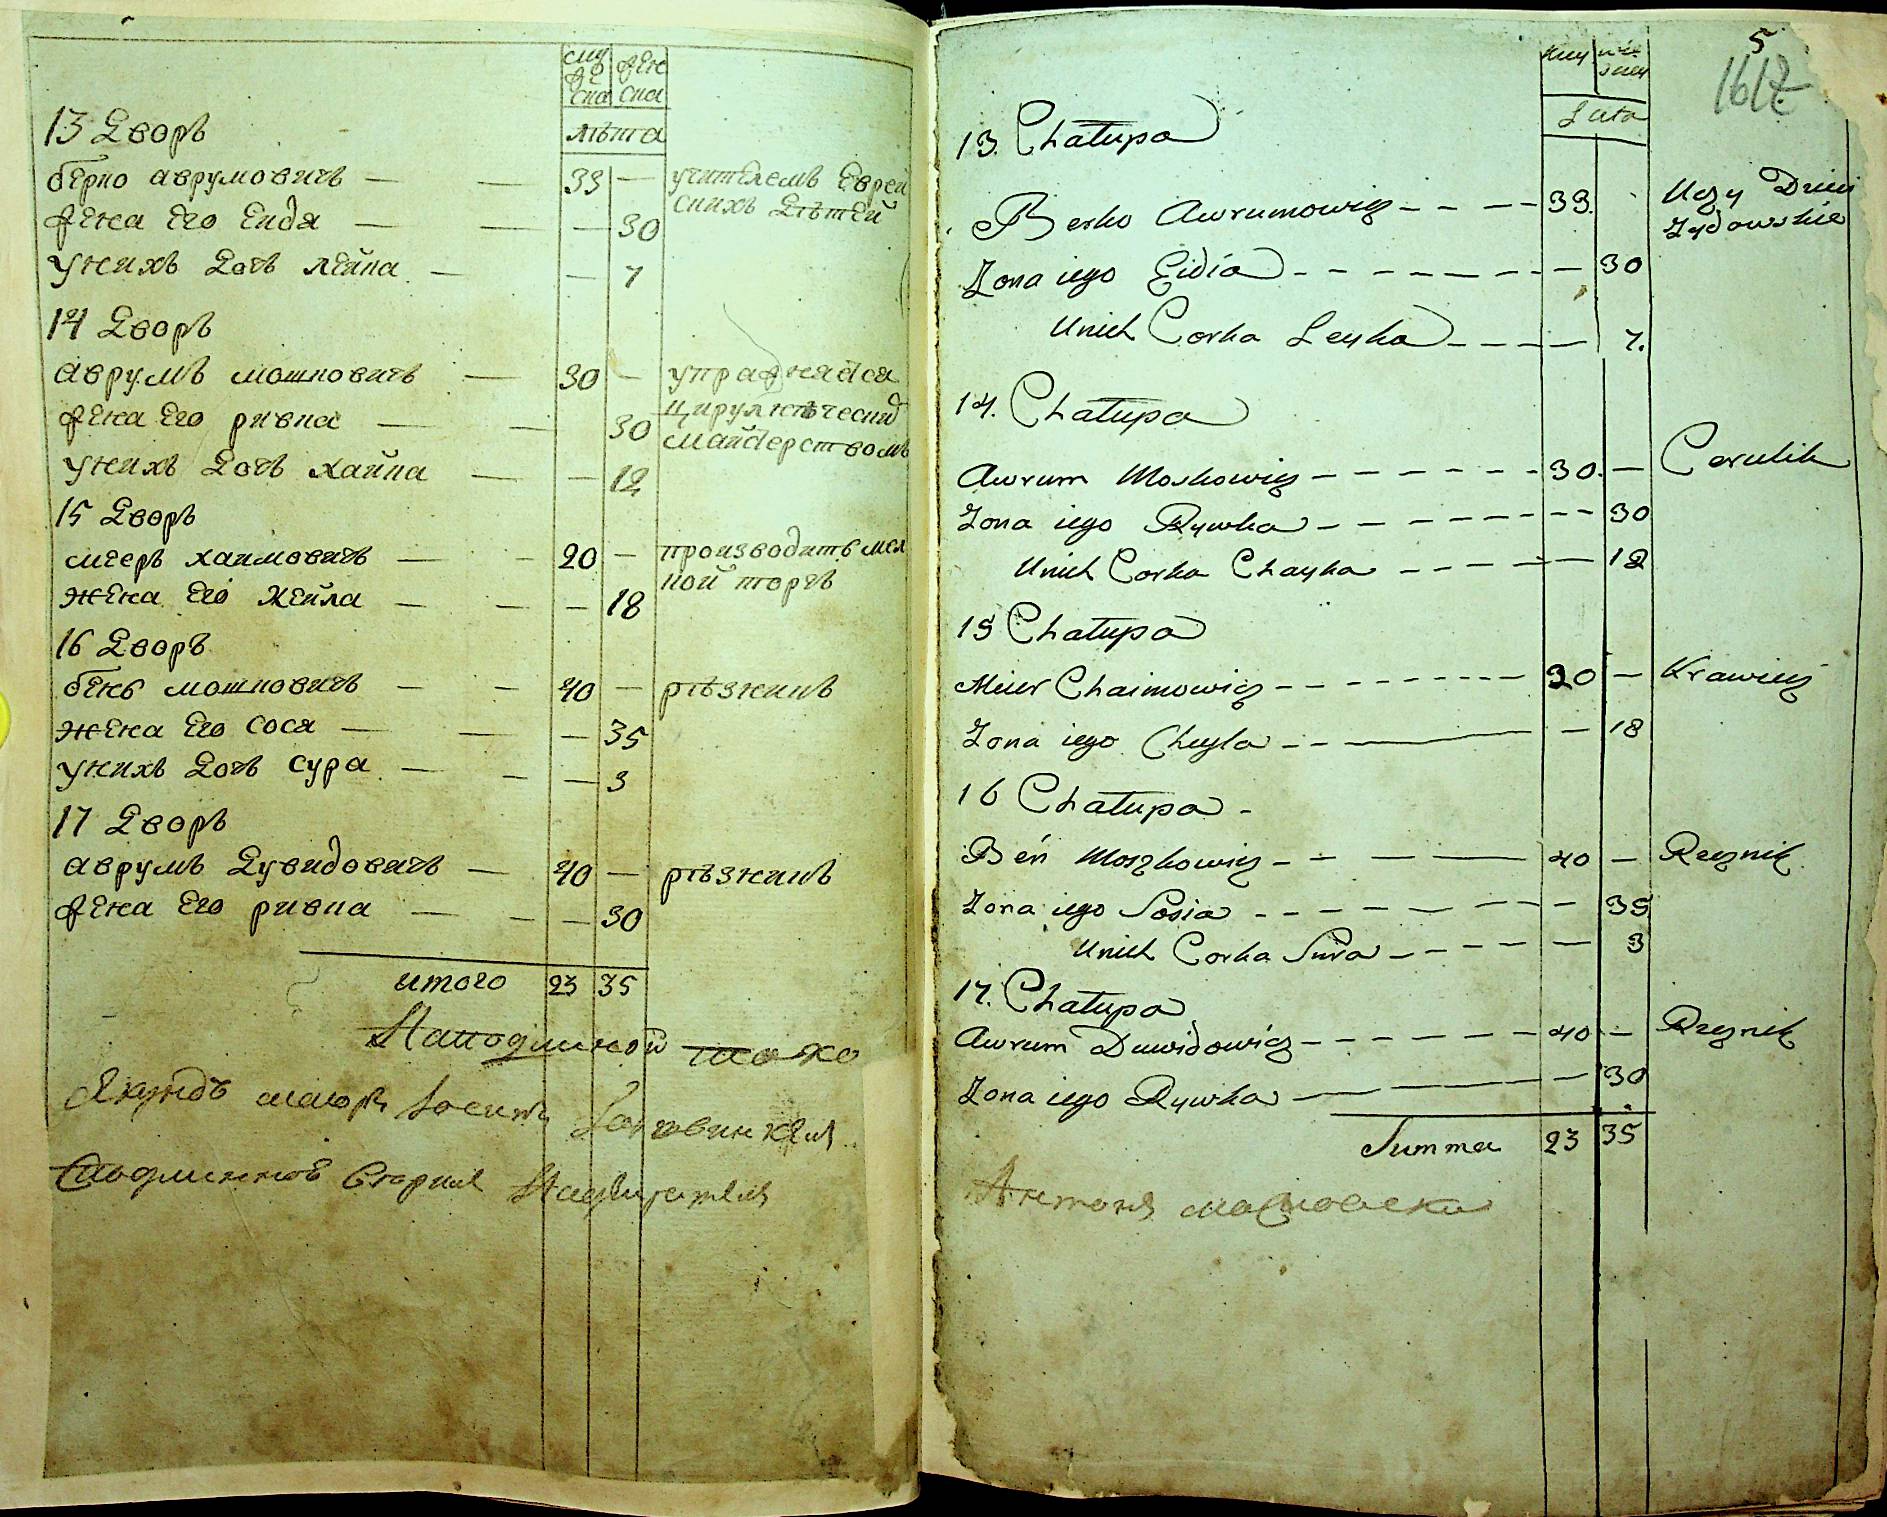 муже ска
жен ска
лѣта
13 Дворъ
берко аврумовичъ — — 33 — учителемъ Еврей
скихъ Дѣтей
жена Его Ейдя — — — 30
у нихъ Дочь лейка — — 7
14 Дворъ
аврумъ мошковичъ — 30 — упражняется
жена Его ривка — — 30 цирулническимъ
майстерствомъ
у нихъ Дочь хайка — — 12
15 Дворъ
мееръ хаимовичъ — - 20 — производитъ мел
кой торгъ
жена Его хейла — - — 18
16 Дворъ
бенъ мошковичъ — - 40 — рѣзникъ
жена Его Сося — — — 35
у нихъ Дочь Сура — - — 3
17 Дворъ
аврумъ Дувидовичъ — 40 — рѣзникъ
жена Его ривка — - — 30
итого 23 35
На подлинной
маіоръ
Старшій Надзиратель
5
1617
Lata
13. Chałupa
Berko Awrumowicz - - - - 33. Uczy Dzieci
Żydowskie
Żona iego Eidia - - - - - - — 30
U nich Corka Leyka - - - - — 7.
14. Chałupa
Awrum Moskowicz - - - - - - - 30. — Cerulik
Żona iego Rywka - - - - - - - - 30
U nich Corka Chayka - - - - - — 12
15 Chałupa
Meier Chaimowicz - - - - - - - - 20 — Krawiec
Żona iego Cheyla - - — — 18
16 Chałupa -
Beń Moszkowicz - - — — 40 — Rzeznik
Żona iego Sosia - - - - - - - — 35
U nich Corka Sura - - - - - — 3
17. Chałupa
Awrum Duwidowicz - - - - - - 40 — Rzeznik
Żona iego Rywka — — — 30
Summa 23 35